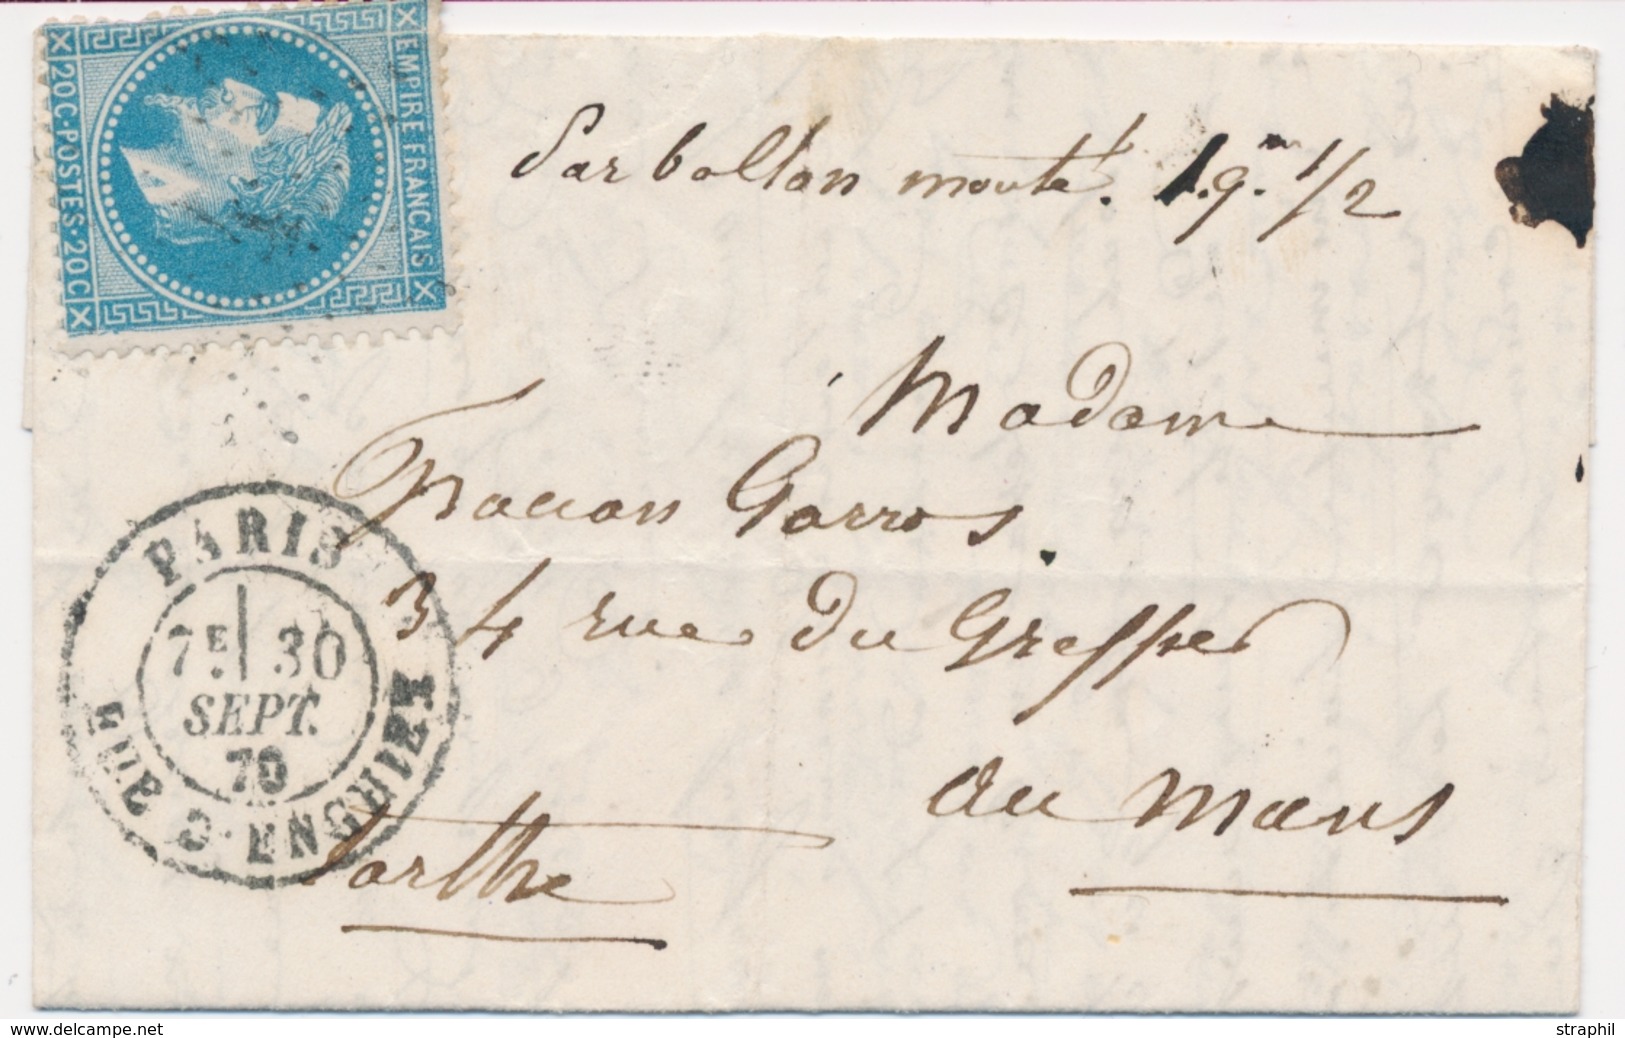 EMPIRE FRANCAIS
20C·POSTES·20C
Par ballon monté. 1.gm. 1/2
Madame
Garros.
34 rue du Greffier
au Mans
Sarthe
PARIS
7E 30
SEPT.
70
RUE D'ENGHIEN
www.delcampe.net
straphil